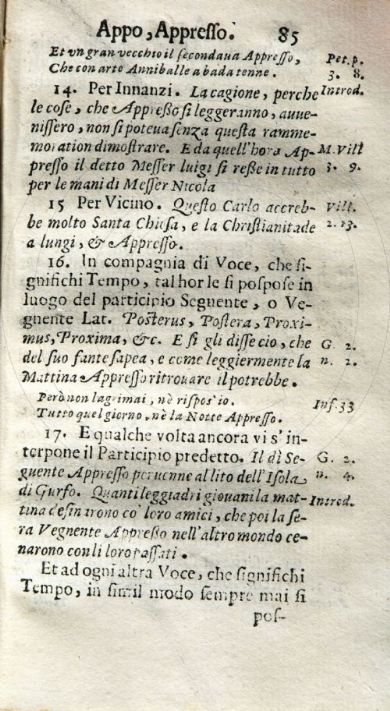 Appo, Appresso. 85
Et un gran vecchio il secondaua Appresso, Pet. p.
Che con arte Anniballe a bada tenne. 3. 8.
14. Per Innanzi. La cagione, perche Introd.
le cose, che Appreßo si leggeranno, auue-
nissero, non si poteua senza questa ramme-
moration dimostrare. E da quell'hora Ap- M. Vill
presso il detto Messer luigi si reße in tutto 3. 9.
per le mani di Messer Nicola
15 Per Vicino. Questo Carlo accreb- Vill.
be molto Santa Chiesa, e la Christianitade 2. 13.
a lungi, & Appresso.
16. In compagnia di Voce, che si-
gnifichi Tempo, tal hor le si pospose in
luogo del participio Seguente, o Ve-
gnente Lat. Posterus, Postera, Proxi-
mus, Proxima, &c. E si gli disse cio, che G. 2.
del suo fante sapea, e come leggiermente la n. 2.
Mattina Appresso ritrouare il potrebbe.
Però non lagrimai, nè rispos'io. Inf. 33
Tutto quel giorno, nè la Notte Appresso.
17. E qualche volta ancora vi s'in-
terpone il Participio predetto. Il dì Se- G. 2.
guente Appresso peruenne al lito dell'Isola n. 4.
di Gurfo. Quanti leggiadri giouani la mat- Introd.
tina desinarono co' loro amici, che poi la se-
ra Vegnente Appreßo nell'altro mondo ce-
narono con li loro passati.
Et ad ogni altra Voce, che significhi
Tempo, in simil modo sempre mai si
pos-